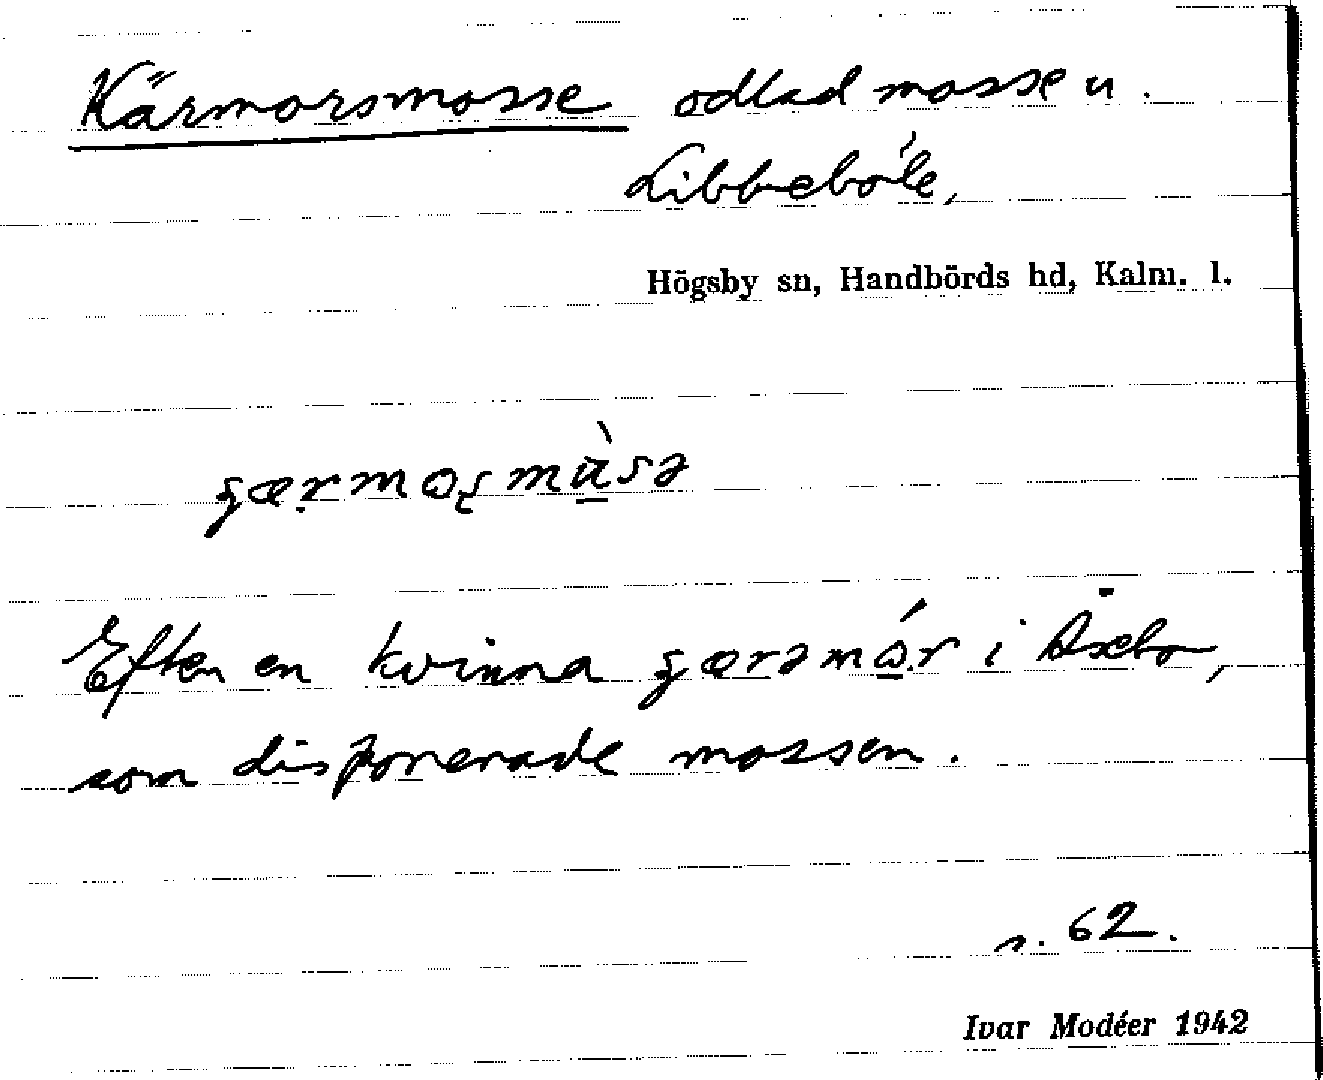 Kärmorsmosse odlad mosse u.
Libbeböle,
Högsby sn, Handbörds hd, Kalm. l.
ʂærmoʂmùsə
Efter en kvinna ʂærəmór i Äsebo,
som disponerade mossen.
s. 62.
Ivar Modéer 1942